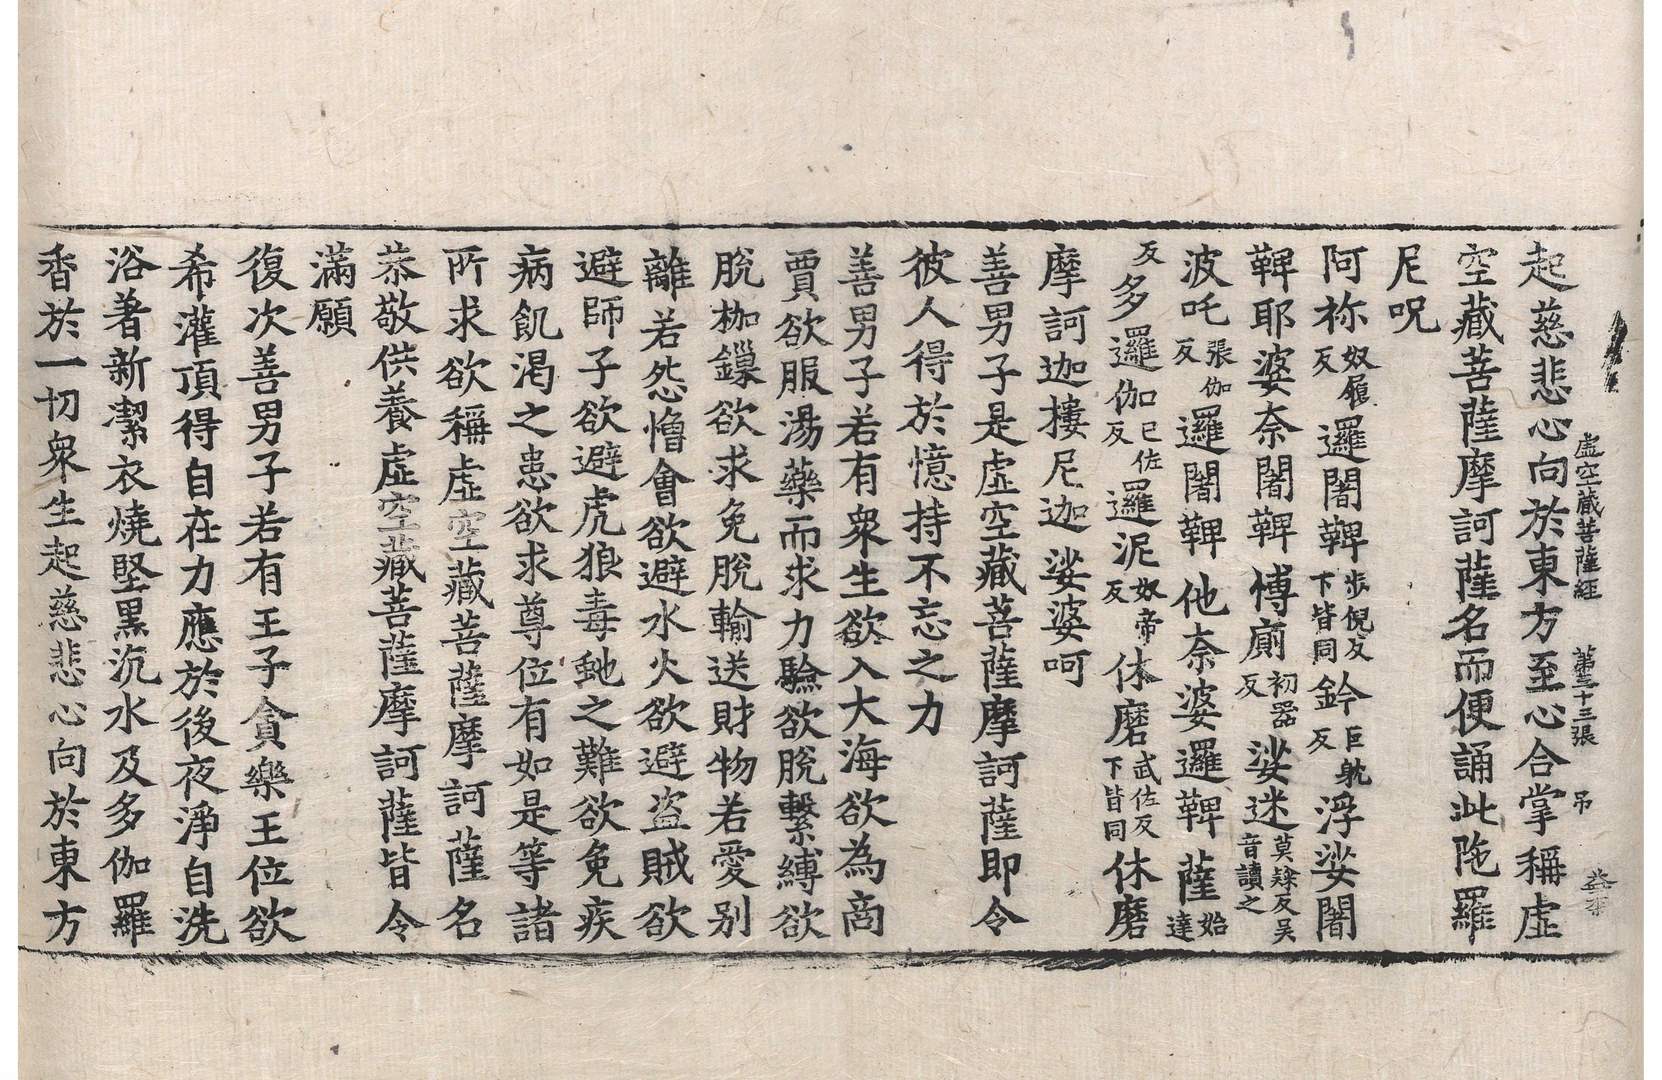 虛空藏菩薩經 第二十三張 吊
起慈悲心向於東方至心合掌稱虛
空藏菩薩摩訶薩名而便誦此陁羅
尼呪
阿祢奴履反邏闍鞞步倪反下皆同鈐巨躭反浮娑闍
鞞耶婆奈闍鞞博廁初器反娑迷莫隸反吴音讀之
波吒張伽反邏闍鞞他奈婆邏鞞薩始達
反多邏伽口已佐反邏泥奴帝反休磨武佐反下皆同休磨
摩訶迦樓尼迦娑婆呵
善男子是虛空藏菩薩摩訶薩即令
彼人得於憶持不忘之力
善男子若有衆生欲入大海欲為商
賈欲服湯藥而求力驗欲脫繫縛欲
脫枷鏁欲求免脫輸送財物若愛別
離若怨憎會欲避水火欲避盜賊欲
避師子欲避虎狼毒虵之難欲免疾
病飢渴之患欲求尊位有如是等諸
所求欲稱虛空藏菩薩摩訶薩名
恭敬供養虛空藏菩薩摩訶薩皆令
滿願
復次善男子若有王子貪樂王位欲
希灌頂得自在力應於後夜淨自洗
浴著新潔衣燒堅黑沉水及多伽羅
香於一切衆生起慈悲心向於東方